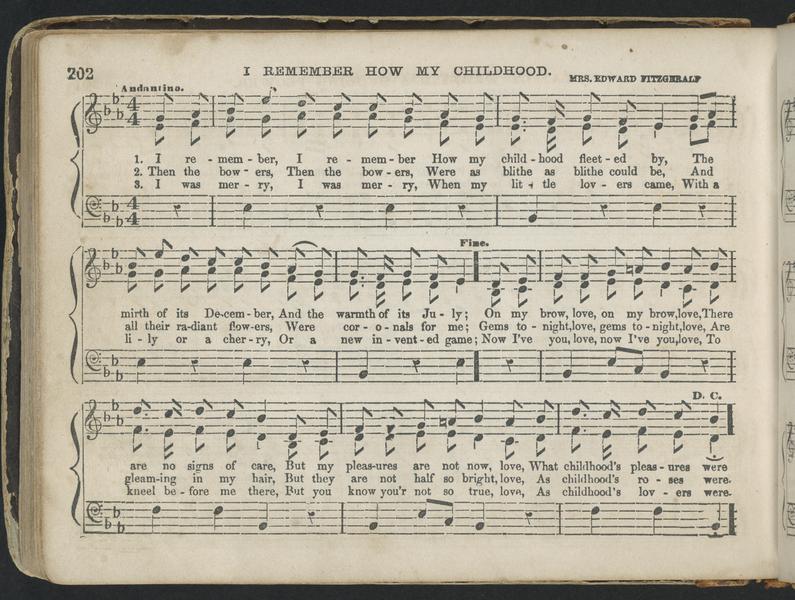 202
I REMEMBER HOW MY CHILDHOOD.
MRS. EDWARD FITZGERALD
Andantino.
1. I re - mem - ber, I re - mem - ber How my child - hood fleet - ed by, The
2. Then the bow - ers, Then the bow - ers, Were as blithe as blithe could be, And
3. I was mer - ry, I was mer - ry, When my lit - tle lov - ers came, With a
Fine.
mirth of its De-cem - ber, And the warmth of its Ju - ly; On my brow, love, on my brow, love, There
all their ra-diant flow-ers, Were cor - o - nals for me; Gems to - night, love, gems to - night, love, Are
li - ly or a cher - ry, Or a new in - vent - ed game; Now I've you, love, now I've you, love, To
D. C.
are no signs of care, But my pleas-ures are not now, love, What childhood's pleas - ures were
gleam-ing in my hair, But they are not half so bright, love, As childhood's ro - ses were.
kneel be - fore me there, But you know you'r not so true, love, As childhood's lov - ers were.